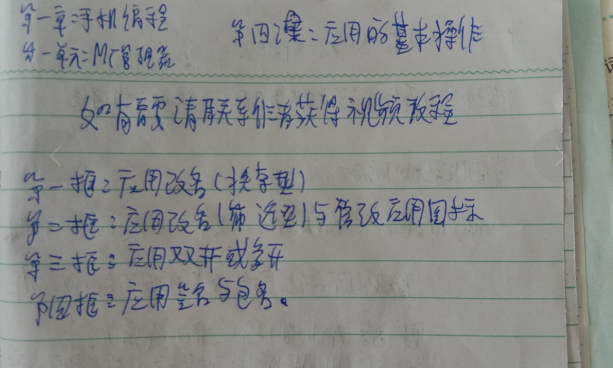 第一章:手机编程
第一单元:MT管理器
第四课:应用的基本操作
如有需要请联系作者获得视频教程
第一框:应用改名(找字型)
第二框:应用改名(筛选型)与修改应用图标
第三框:应用双开或多开
第四框:应用签名与包名。